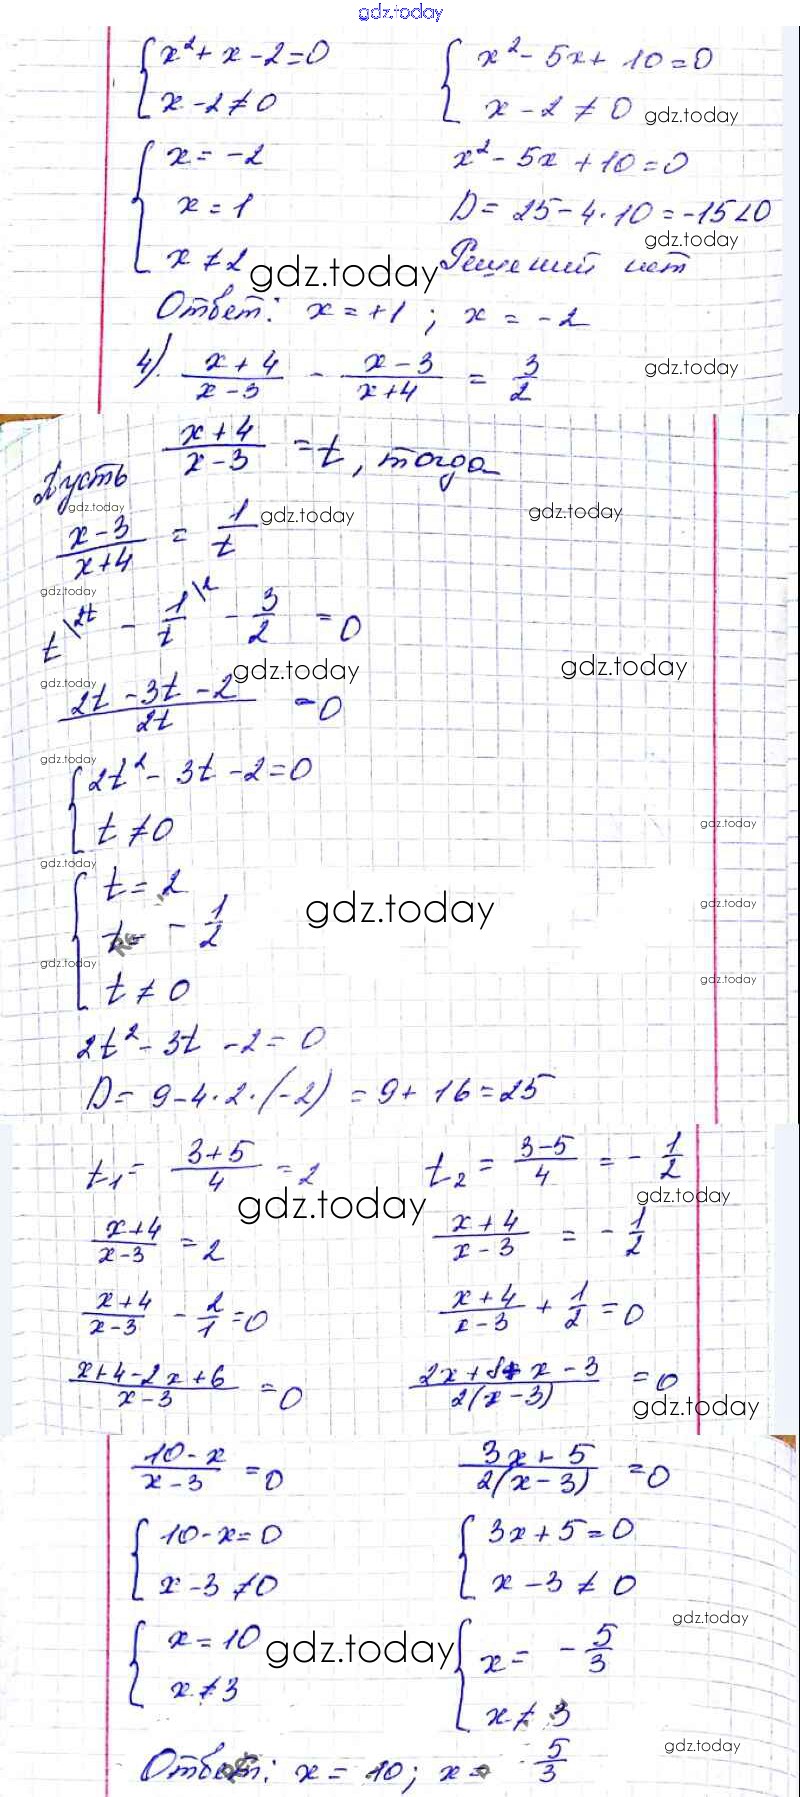 gdz.today
{ x² + x - 2 = 0    { x² - 5x + 10 = 0
{ x - 2 ≠ 0    { x - 2 ≠ 0 gdz.today
{ x = -2    x² - 5x + 10 = 0
{ x = 1    D = 25 - 4·10 = -15 < 0
gdz.today
{ x ≠ 2 gdz.today Решений нет
Ответ: x = +1 ; x = -2
4). (x+4)/(x-3) - (x-3)/(x+4) = 3/2 gdz.today
Пусть (x+4)/(x-3) = t, тогда
gdz.today
(x-3)/(x+4) = 1/t gdz.today gdz.today
gdz.today
t\2t - 1/t\2 - 3/2 = 0
gdz.today gdz.today gdz.today
(2t - 3t - 2)/2t = 0
gdz.today
{ 2t² - 3t - 2 = 0
{ t ≠ 0 gdz.today
gdz.today
{ t = 2
{ t = -1/2 gdz.today gdz.today
gdz.today
{ t ≠ 0 gdz.today
2t² - 3t - 2 = 0
D = 9 - 4·2·(-2) = 9 + 16 = 25
t₁ = (3+5)/4 = 2    t₂ = (3-5)/4 = -1/2
gdz.today gdz.today
(x+4)/(x-3) = 2    (x+4)/(x-3) = -1/2
(x+4)/(x-3) - 2/1 = 0    (x+4)/(x-3) + 1/2 = 0
(x+4-2x+6)/(x-3) = 0    (2x+8+x-3)/2(x-3) = 0
gdz.today
(10-x)/(x-3) = 0    (3x+5)/2(x-3) = 0
{ 10 - x = 0    { 3x + 5 = 0
{ x - 3 ≠ 0    { x - 3 ≠ 0
gdz.today
{ x = 10 gdz.today { x = -5/3
{ x ≠ 3    { x ≠ 3
gdz.today
Ответ: x = 10; x = -5/3